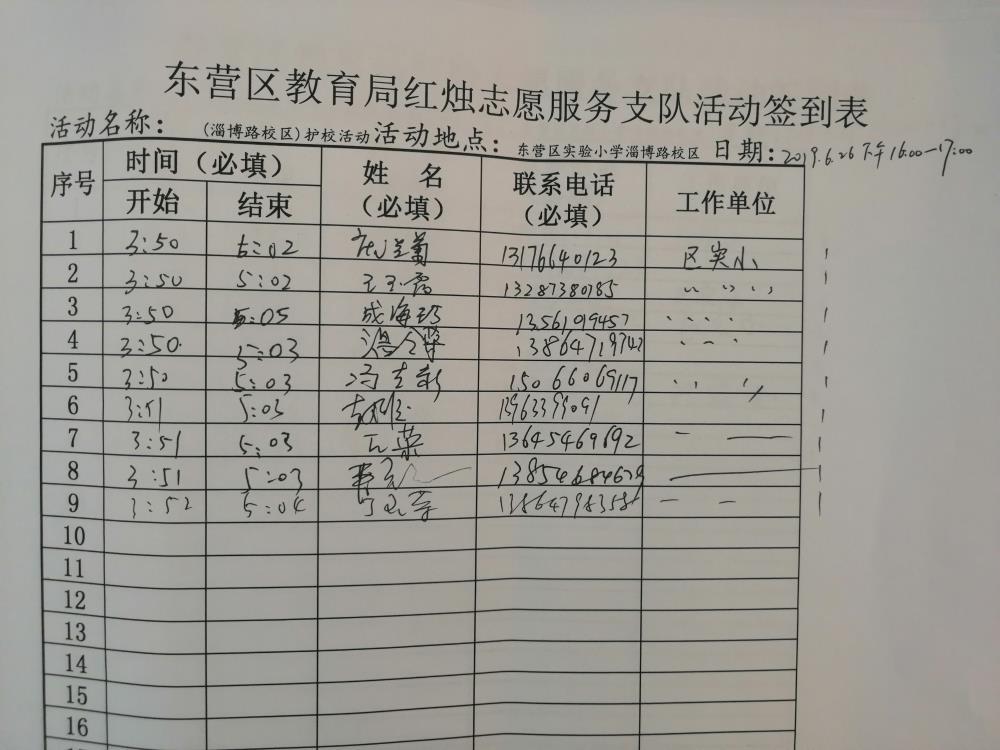 东营区教育局红烛志愿服务支队活动签到表
活动名称：（淄博路校区）护校活动 活动地点：东营区实验小学淄博路校区 日期：2019.6.26 下午 16:00-17:00
序号 时间（必填） 姓 名（必填） 联系电话（必填） 工作单位
开始 结束
1 3:50 5:02 13176640123 区实小
2 3:50 5:02 13287380785 〃 〃
3 3:50 5:05 成海珍 13561019457
4 3:50 5:03 13864719742
5 3:50 5:03 15066069117
6 3:51 5:03 13963399091
7 3:51 5:03 13645469692
8 3:51 5:03
9 3:52 5:04
10
11
12
13
14
15
16